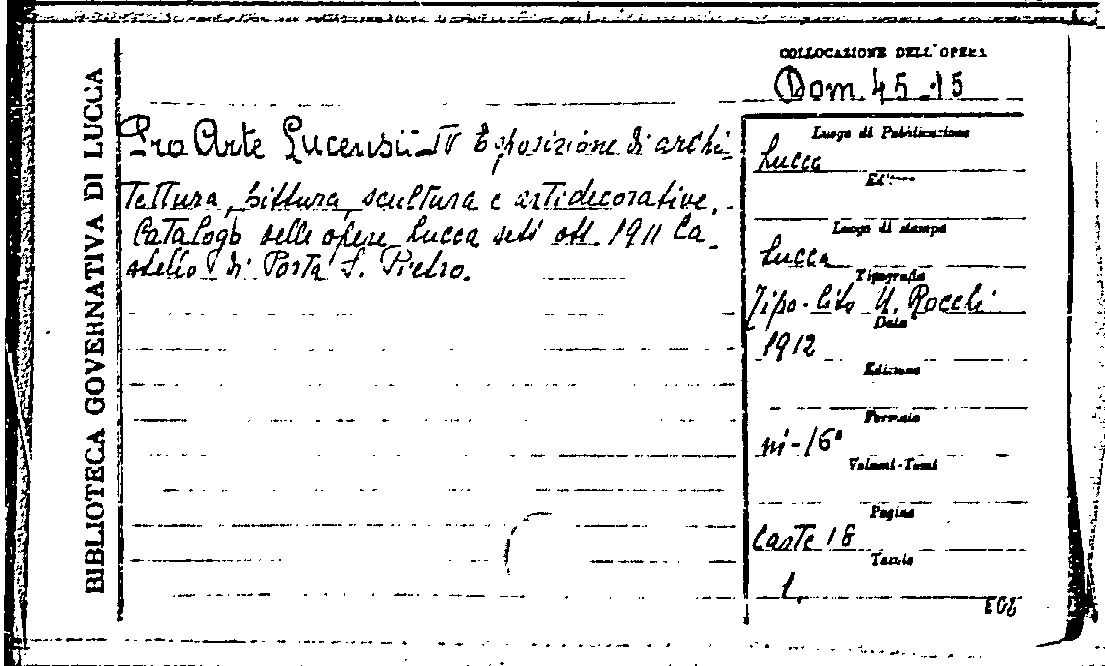 BIBLIOTECA GOVERNATIVA DI LUCCA
COLLOCAZIONE DELL'OPERA
Dom. 45.15
Pro Arte Lucensii - IV Esposizione di archi-
tettura, pittura, scultura e arti decorative.-
Catalogo delle opere Lucca sett. ott. 1911 Ca-
stello di Porta S. Pietro.
Luogo di Pubblicazione
Lucca
Editore
Luogo di stampa
Lucca
Tipografia
Tipo-lito U. Rocchi
Data
1912
Edizione
Formato
in-16°
Volumi-Tomi
Pagine
Carte 18
Tavole
1.